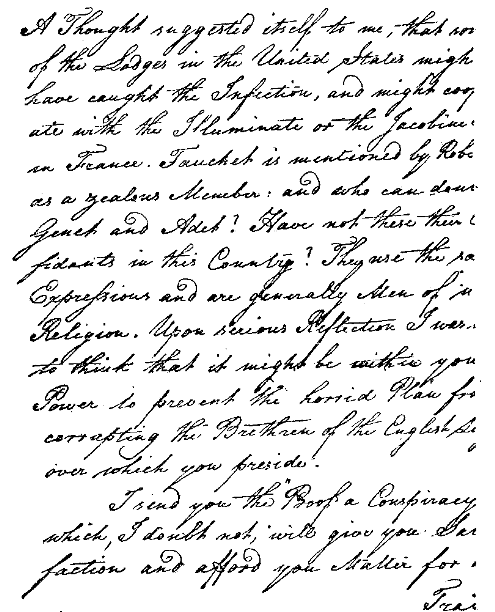 A Thought suggested itself to me, that som
of the Lodges in the United States migh
have caught the Infection, and might coop
ate with the Illuminate or the Jacobine
in France. Fauchet is mentioned by Robe
as a zealous Member: and who can doub
Genet and Adet? Have not these their C
fidants in this Country? They use the sa
Expressions and are generally Men of n
Religion. Upon serious Reflection I was
to think that it might be within your
Power to prevent the horrid Plan fro
corrupting the Brethren of the English Lo
over which you preside.
I send you the "Proof of a Conspiracy
which, I doubt not, will give you Sat
faction and afford you Matter for a
Trai